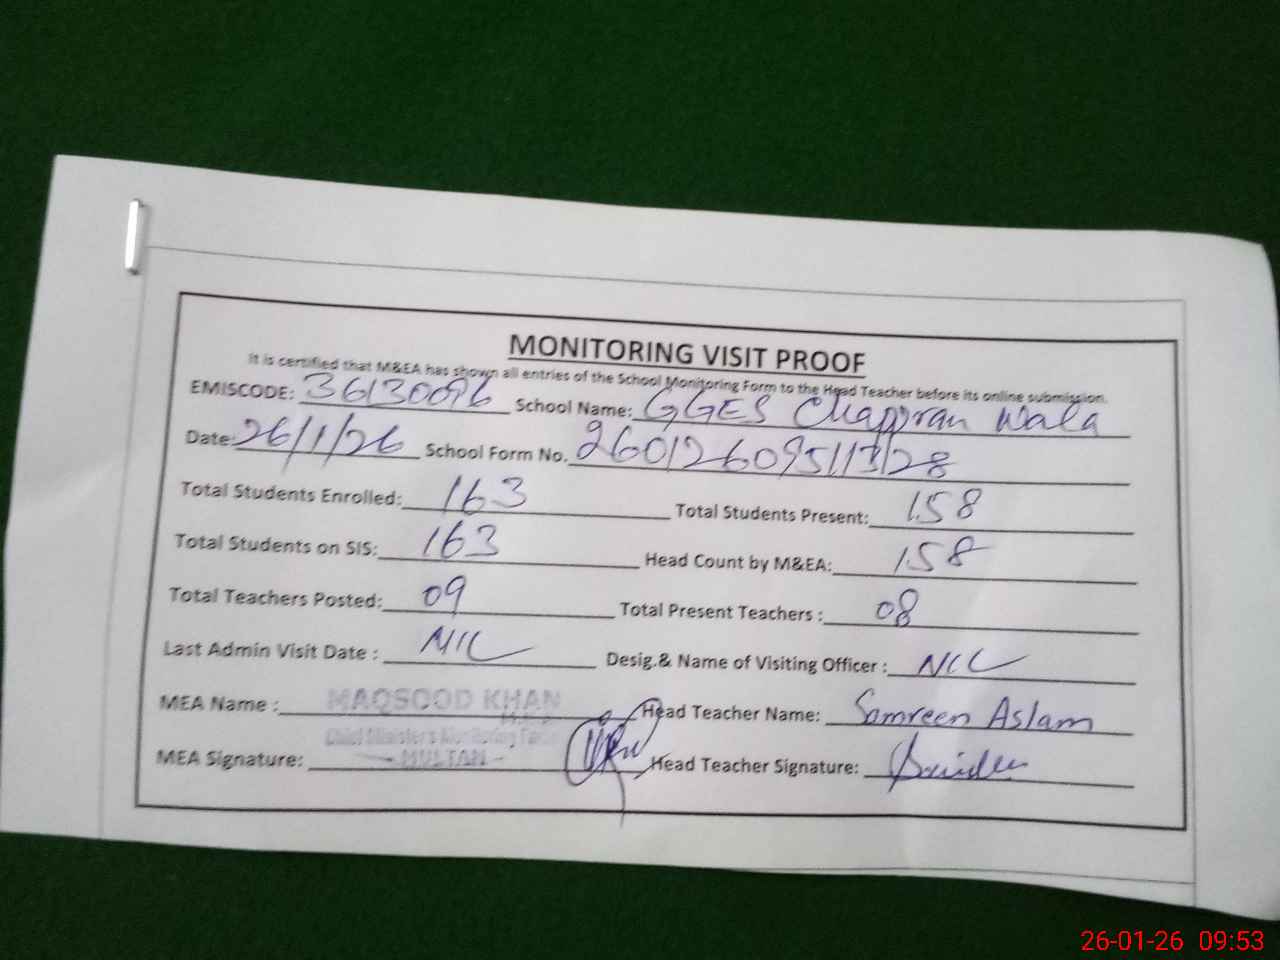 MONITORING VISIT PROOF
It is certified that M&EA has shown all entries of the School Monitoring Form to the Head Teacher before its online submission.
EMISCODE: 36130096 School Name: GGES Chappran Wala
Date: 26/1/26 School Form No. 260126095113128
Total Students Enrolled: 163 Total Students Present: 158
Total Students on SIS: 163 Head Count by M&EA: 158
Total Teachers Posted: 09 Total Present Teachers : 08
Last Admin Visit Date : NIL Desig.& Name of Visiting Officer : NIL
MEA Name : MAQSOOD KHAN Head Teacher Name: Samreen Aslam
M.E.A
Chief Minister's Monitoring Force
MEA Signature: - MULTAN - Head Teacher Signature:
26-01-26 09:53